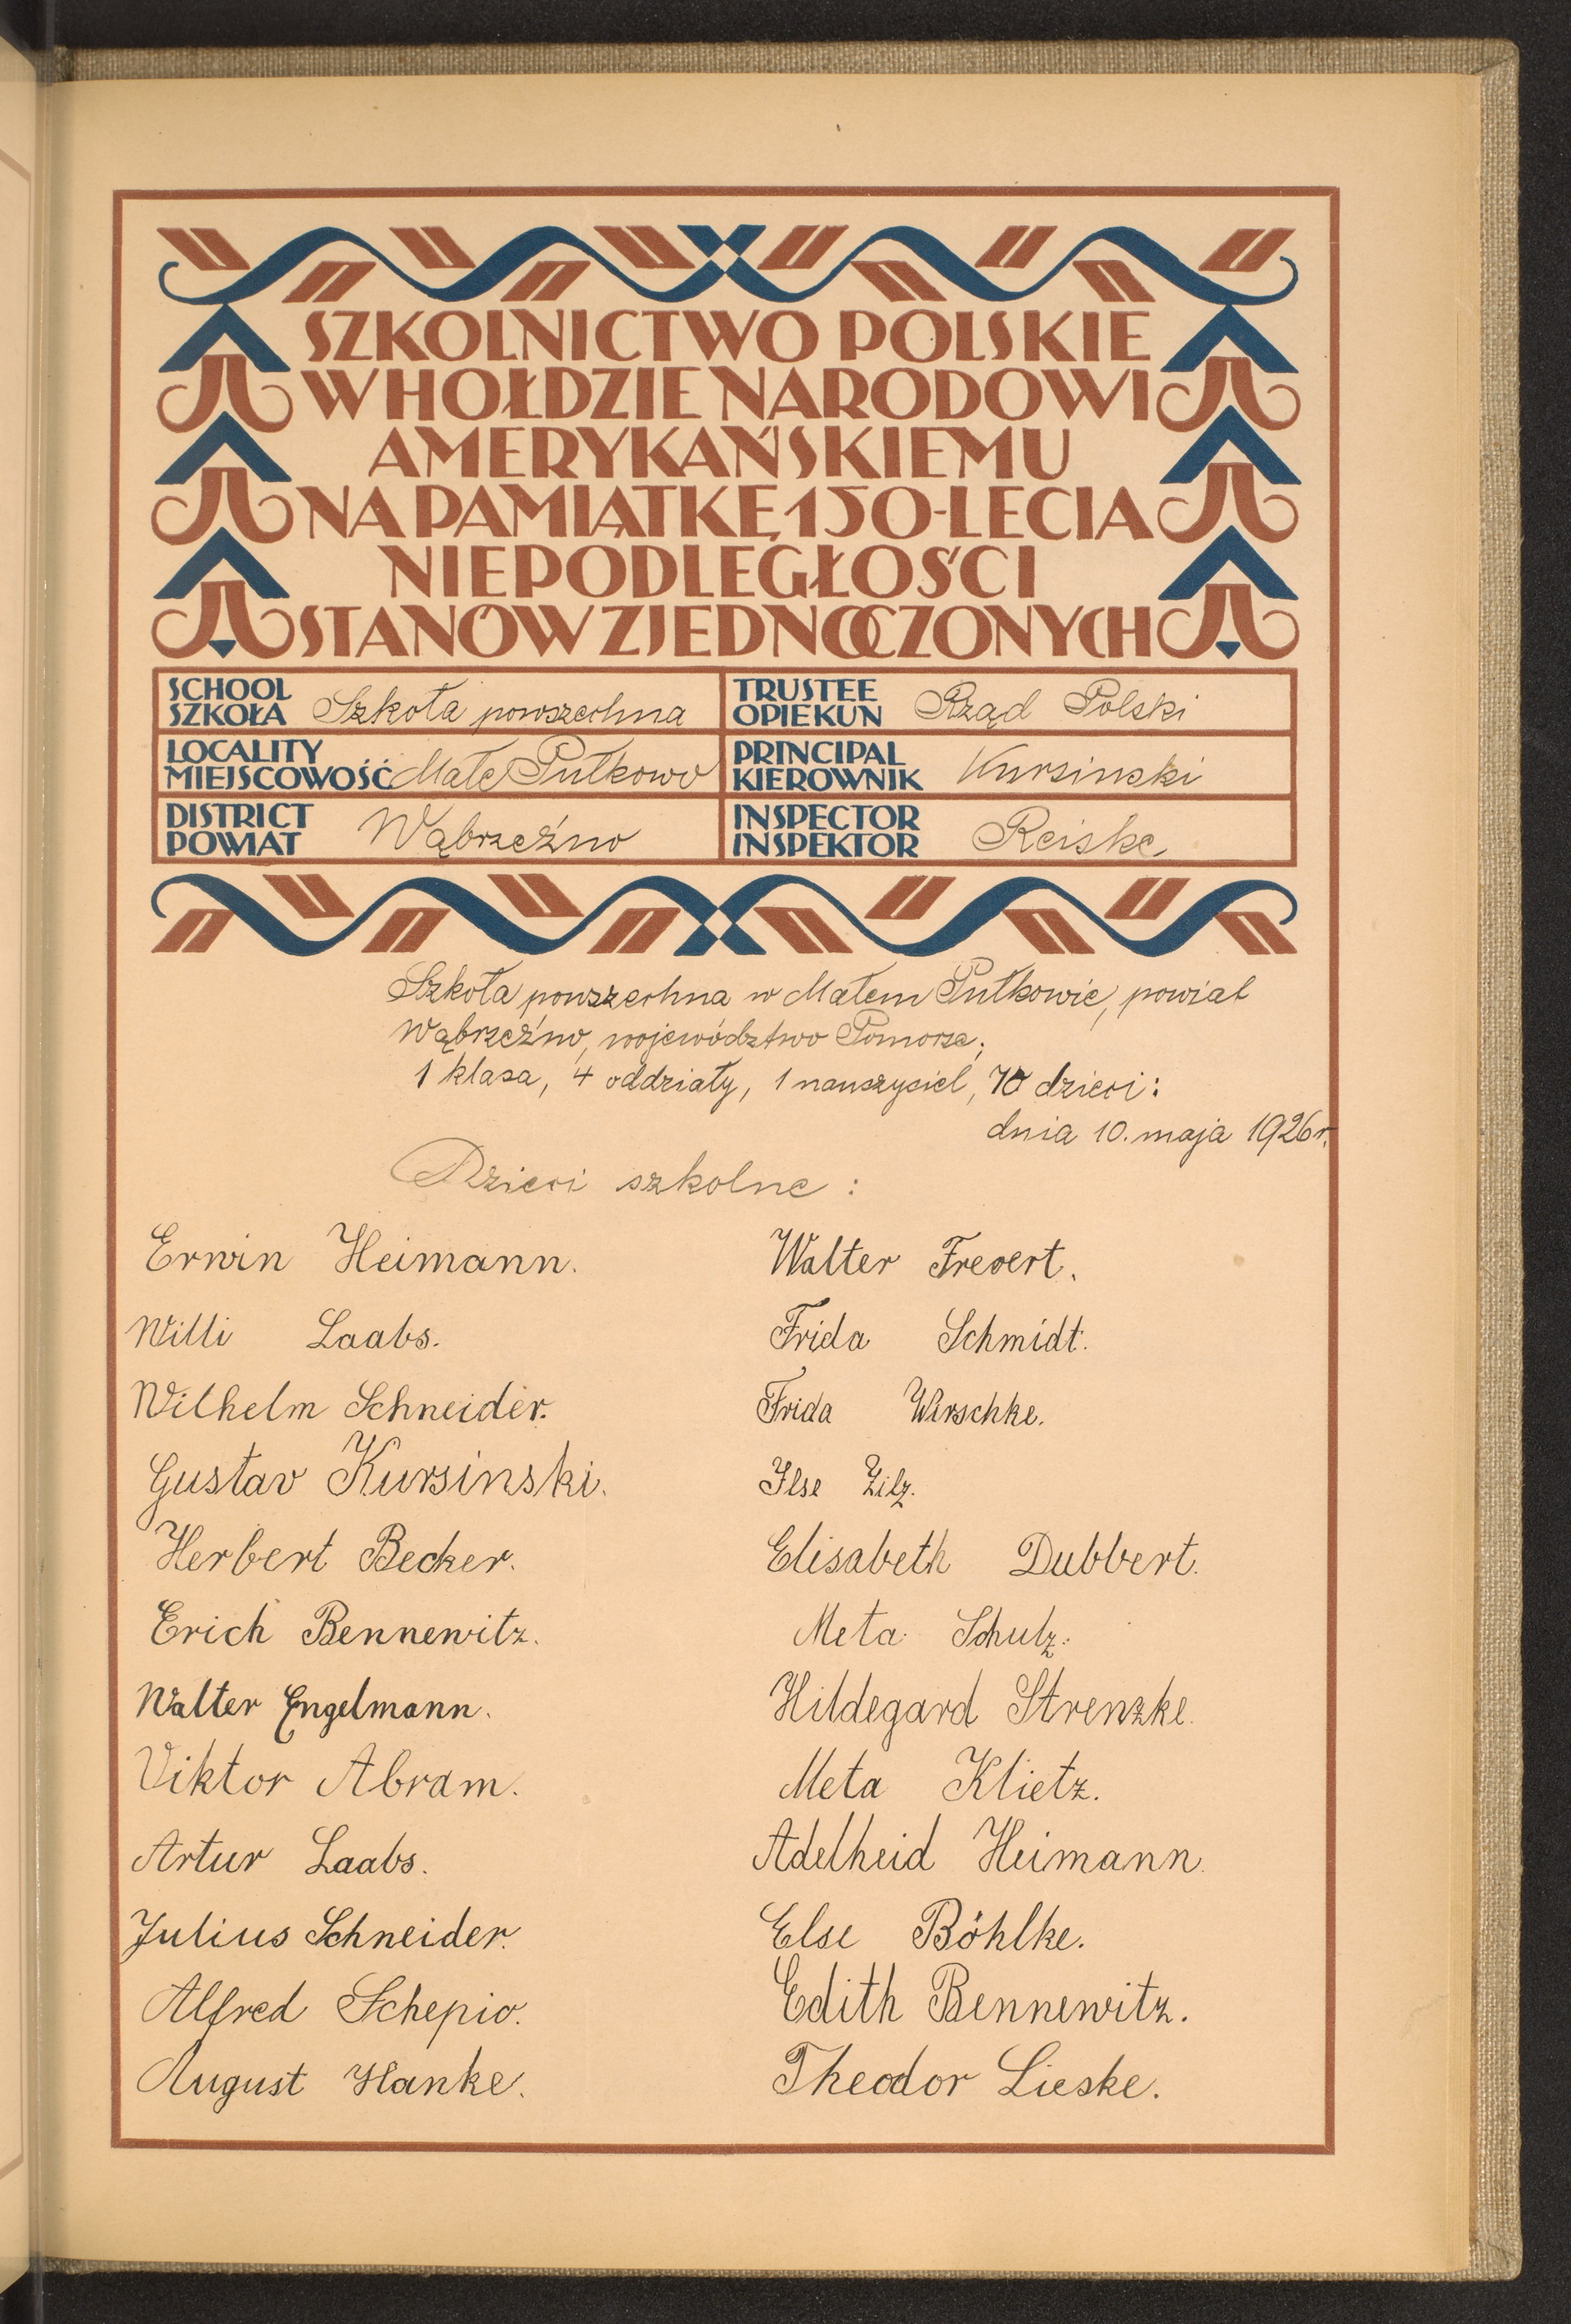 SZKOLNICTWO POLSKIE
W HOŁDZIE NARODOWI
AMERYKAŃSKIEMU
NA PAMIĄTKĘ 150-LECIA
NIEPODLEGŁOŚCI
STANÓW ZJEDNOCZONYCH
SCHOOL
SZKOŁA Szkoła powszechna
TRUSTEE
OPIEKUN Rząd Polski
LOCALITY
MIEJSCOWOŚĆ Małe Pułkowo
PRINCIPAL
KIEROWNIK Kursinski
DISTRICT
POWIAT Wąbrzeźno
INSPECTOR
INSPEKTOR Reiske
Szkoła powszechna w Małem Pułkowie, powiat
Wąbrzeźno, województwo Pomorze;
1 klasa, 4 oddziały, 1 nauczyciel, 70 dzieci:
dnia 10. maja 1926 r.
Dzieci szkolne :
Erwin Heimann.
Willi Laabs.
Wilhelm Schneider.
Gustav Kursinski.
Herbert Becker.
Erich Bennewitz.
Walter Engelmann.
Viktor Abram.
Artur Laabs.
Julius Schneider.
Alfred Schepio.
August Hanke.
Walter Frevert.
Frida Schmidt.
Frida Wirschke.
Ilse Zilz.
Elisabeth Dubbert.
Meta Schulz.
Hildegard Strenzke.
Meta Klietz.
Adelheid Heimann.
Else Böhlke.
Edith Bennewitz.
Theodor Lieske.